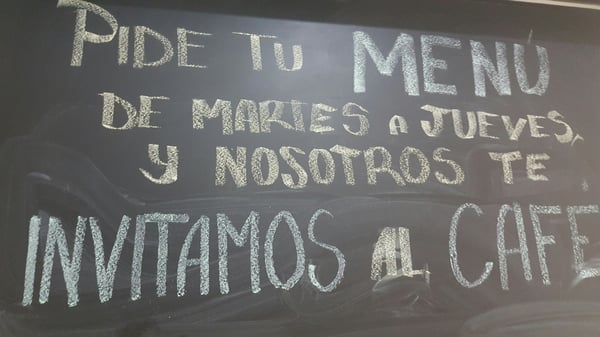 PIDE TU MENÚ
DE MARTES A JUEVES,
Y NOSOTROS TE
INVITAMOS AL CAFÉ